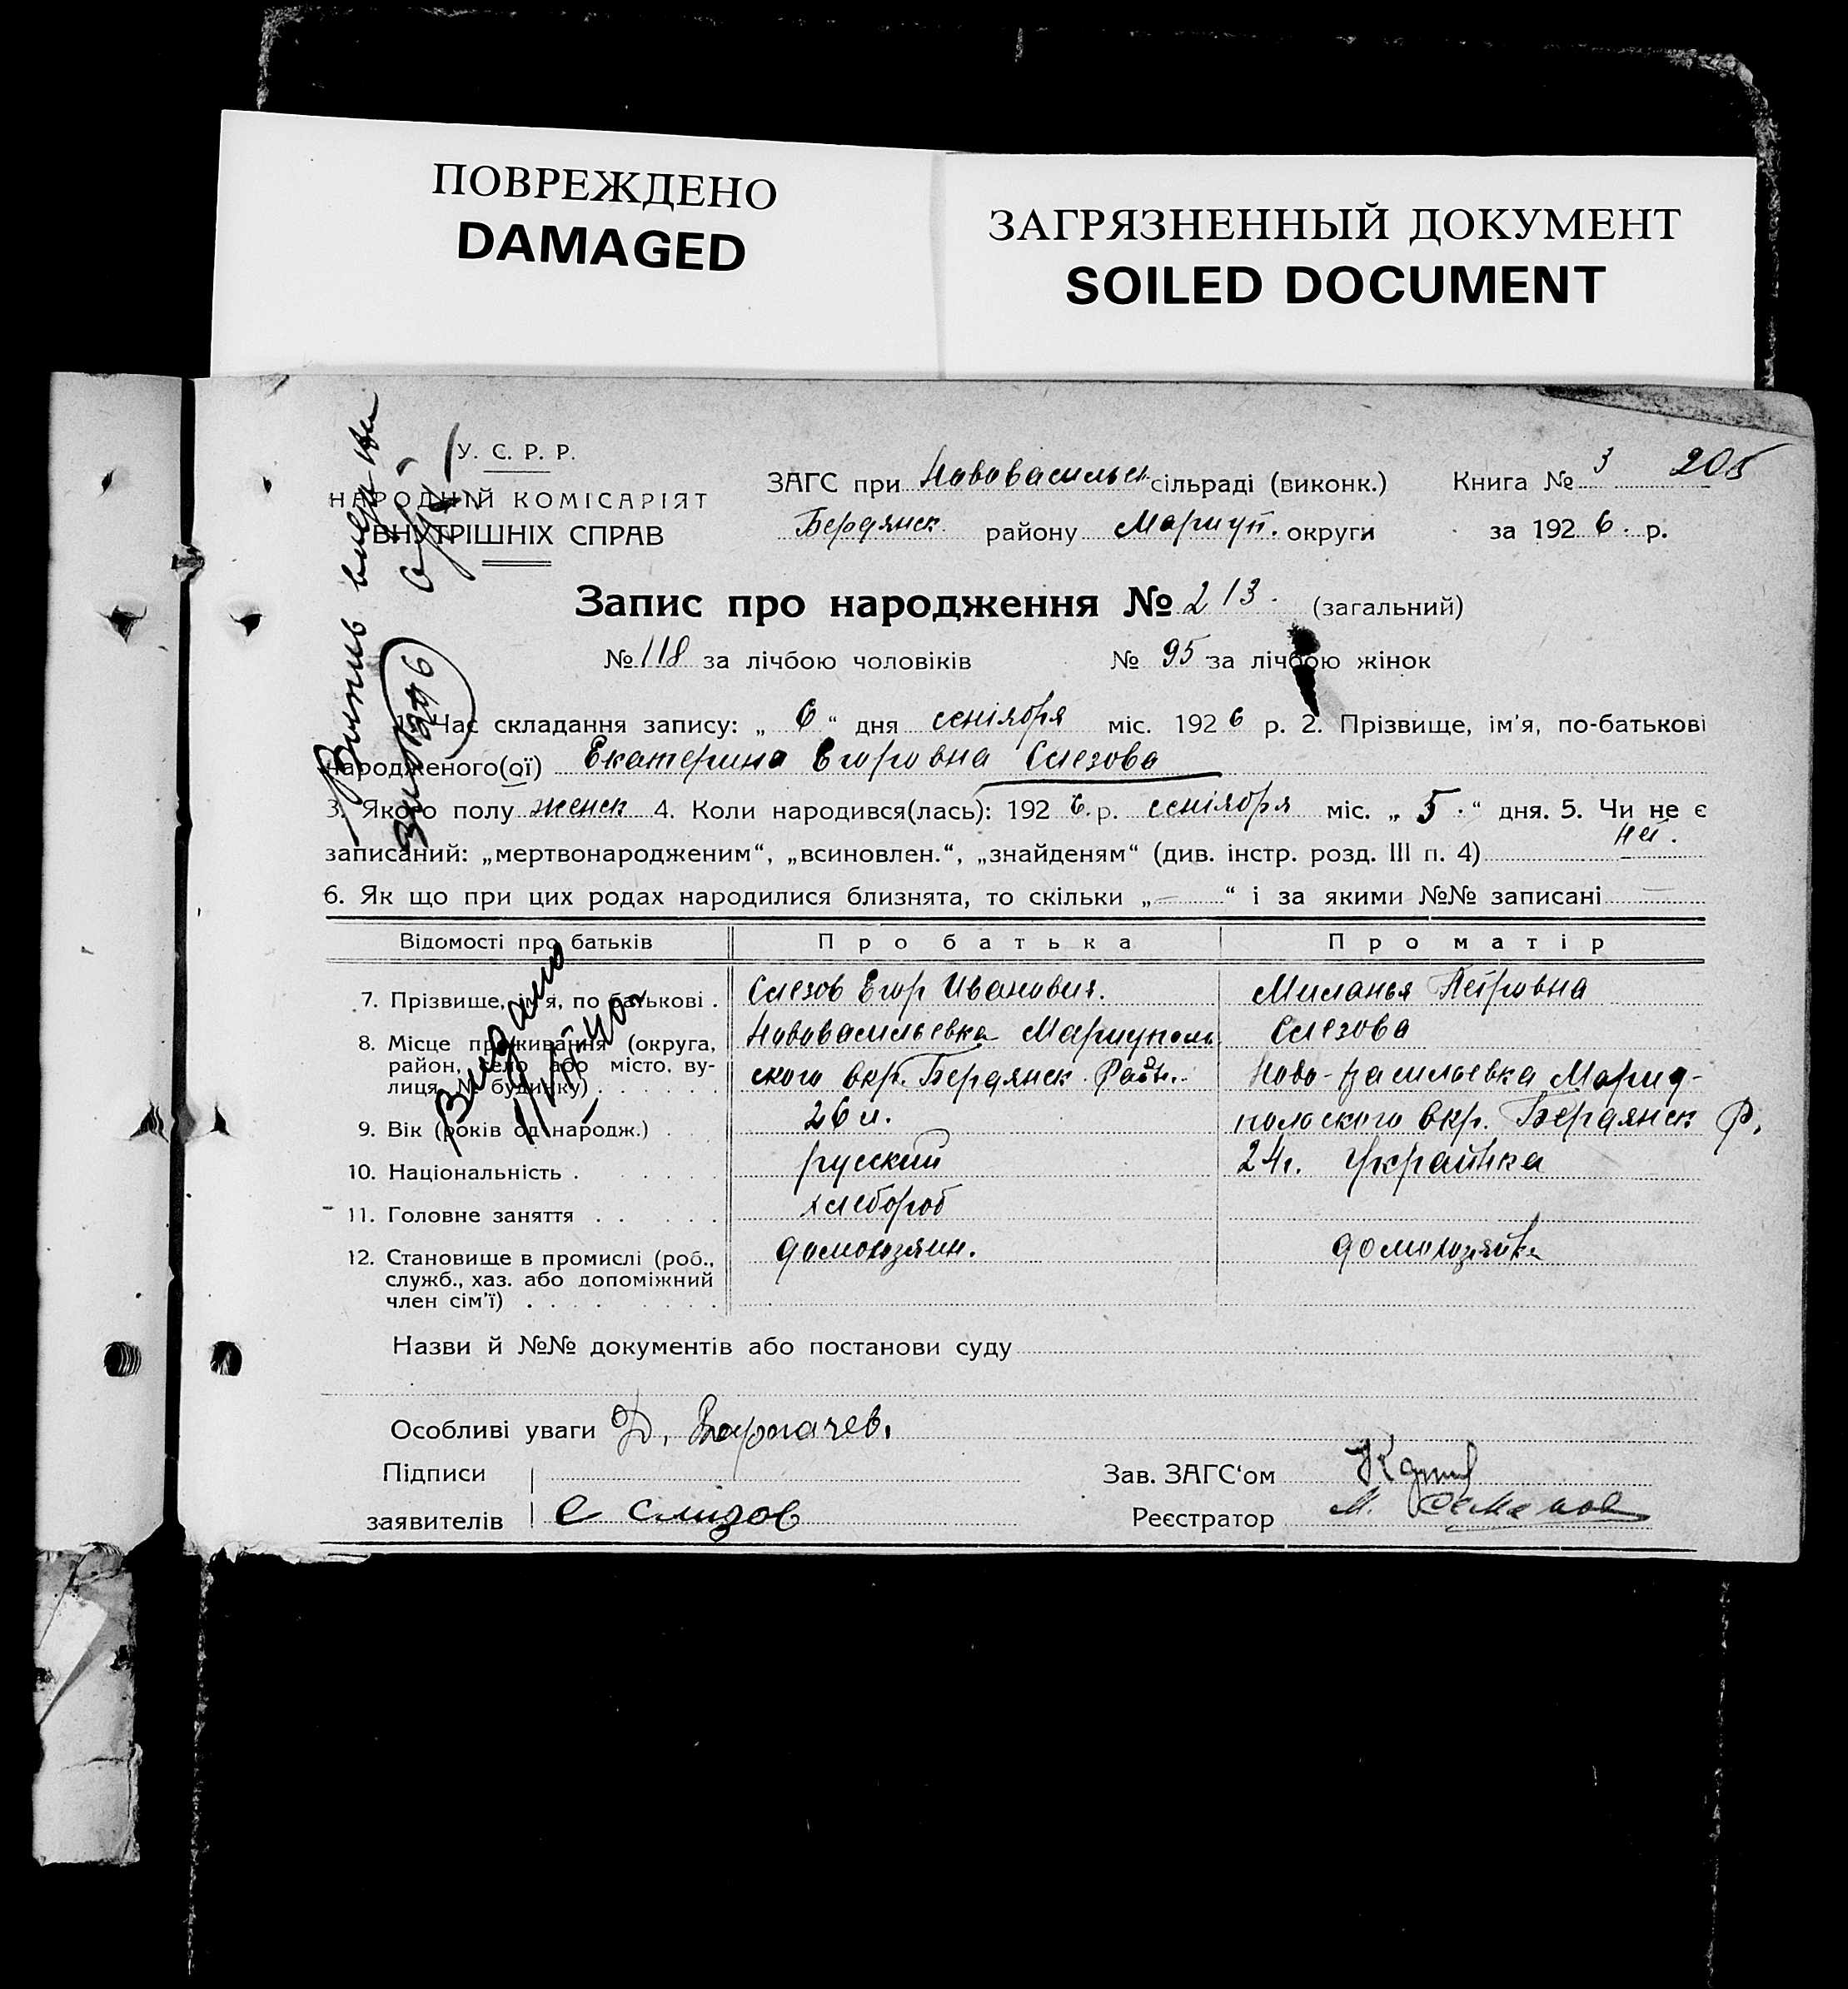 ПОВРЕЖДЕНО
DAMAGED
ЗАГРЯЗНЕННЫЙ ДОКУМЕНТ
SOILED DOCUMENT
У. С. Р. Р.
НАРОДНІЙ КОМІСАРІЯТ
ВНУТРІШНІХ СПРАВ
ЗАГС при Нововасильев. сільраді (виконк.) Книга № 3 205
Бердянск. району Мариуп. округи за 1926. р.
Запис про народження № 213. (загальний)
№ 118 за лічбою чоловіків № 95 за лічбою жінок
1. Час складання запису: „ 6 “ дня сентября міс. 1926 р. 2. Прізвище, ім’я, по-батькові
народженого(ої) Екатерина Егоровна Слезова
3. Якого полу женск 4. Коли народився(лась): 1926. р. сентября міс. „ 5. “ дня. 5. Чи не є
записаний: „мертвонародженим“, „всиновлен.“, „знайденям“ (див. інстр. розд. III п. 4)
6. Як що при цих родах народилися близнята, то скільки „ — “ і за якими №№ записані —
Відомості про батьків Про батька Про матір
7. Прізвище, ім’я, по батькові . Слезов Егор Иванович. Миланья Петровна
Слезова
8. Місце проживання (округа,
район, село або місто, ву-
лиця, № будинку)
Нововасильевка Мариуполь
ского Окр. Бердянск. Райн.
Ново-Васильевка Мариу-
польского Окр. Бердянск Р.
9. Вік (років од народж.) . 26 л. 24 г.
10. Національність . русский Украинка
11. Головне заняття . хлебороб
12. Становище в промислі (роб.,
служб., хаз. або допоміжний
член сім’ї) .
домохозяин. домохозяйка
Назви й №№ документів або постанови суду
Особливі уваги
Підписи
заявителів Е Слизов
Зав. ЗАГС‘ом
Реєстратор М.
Видано